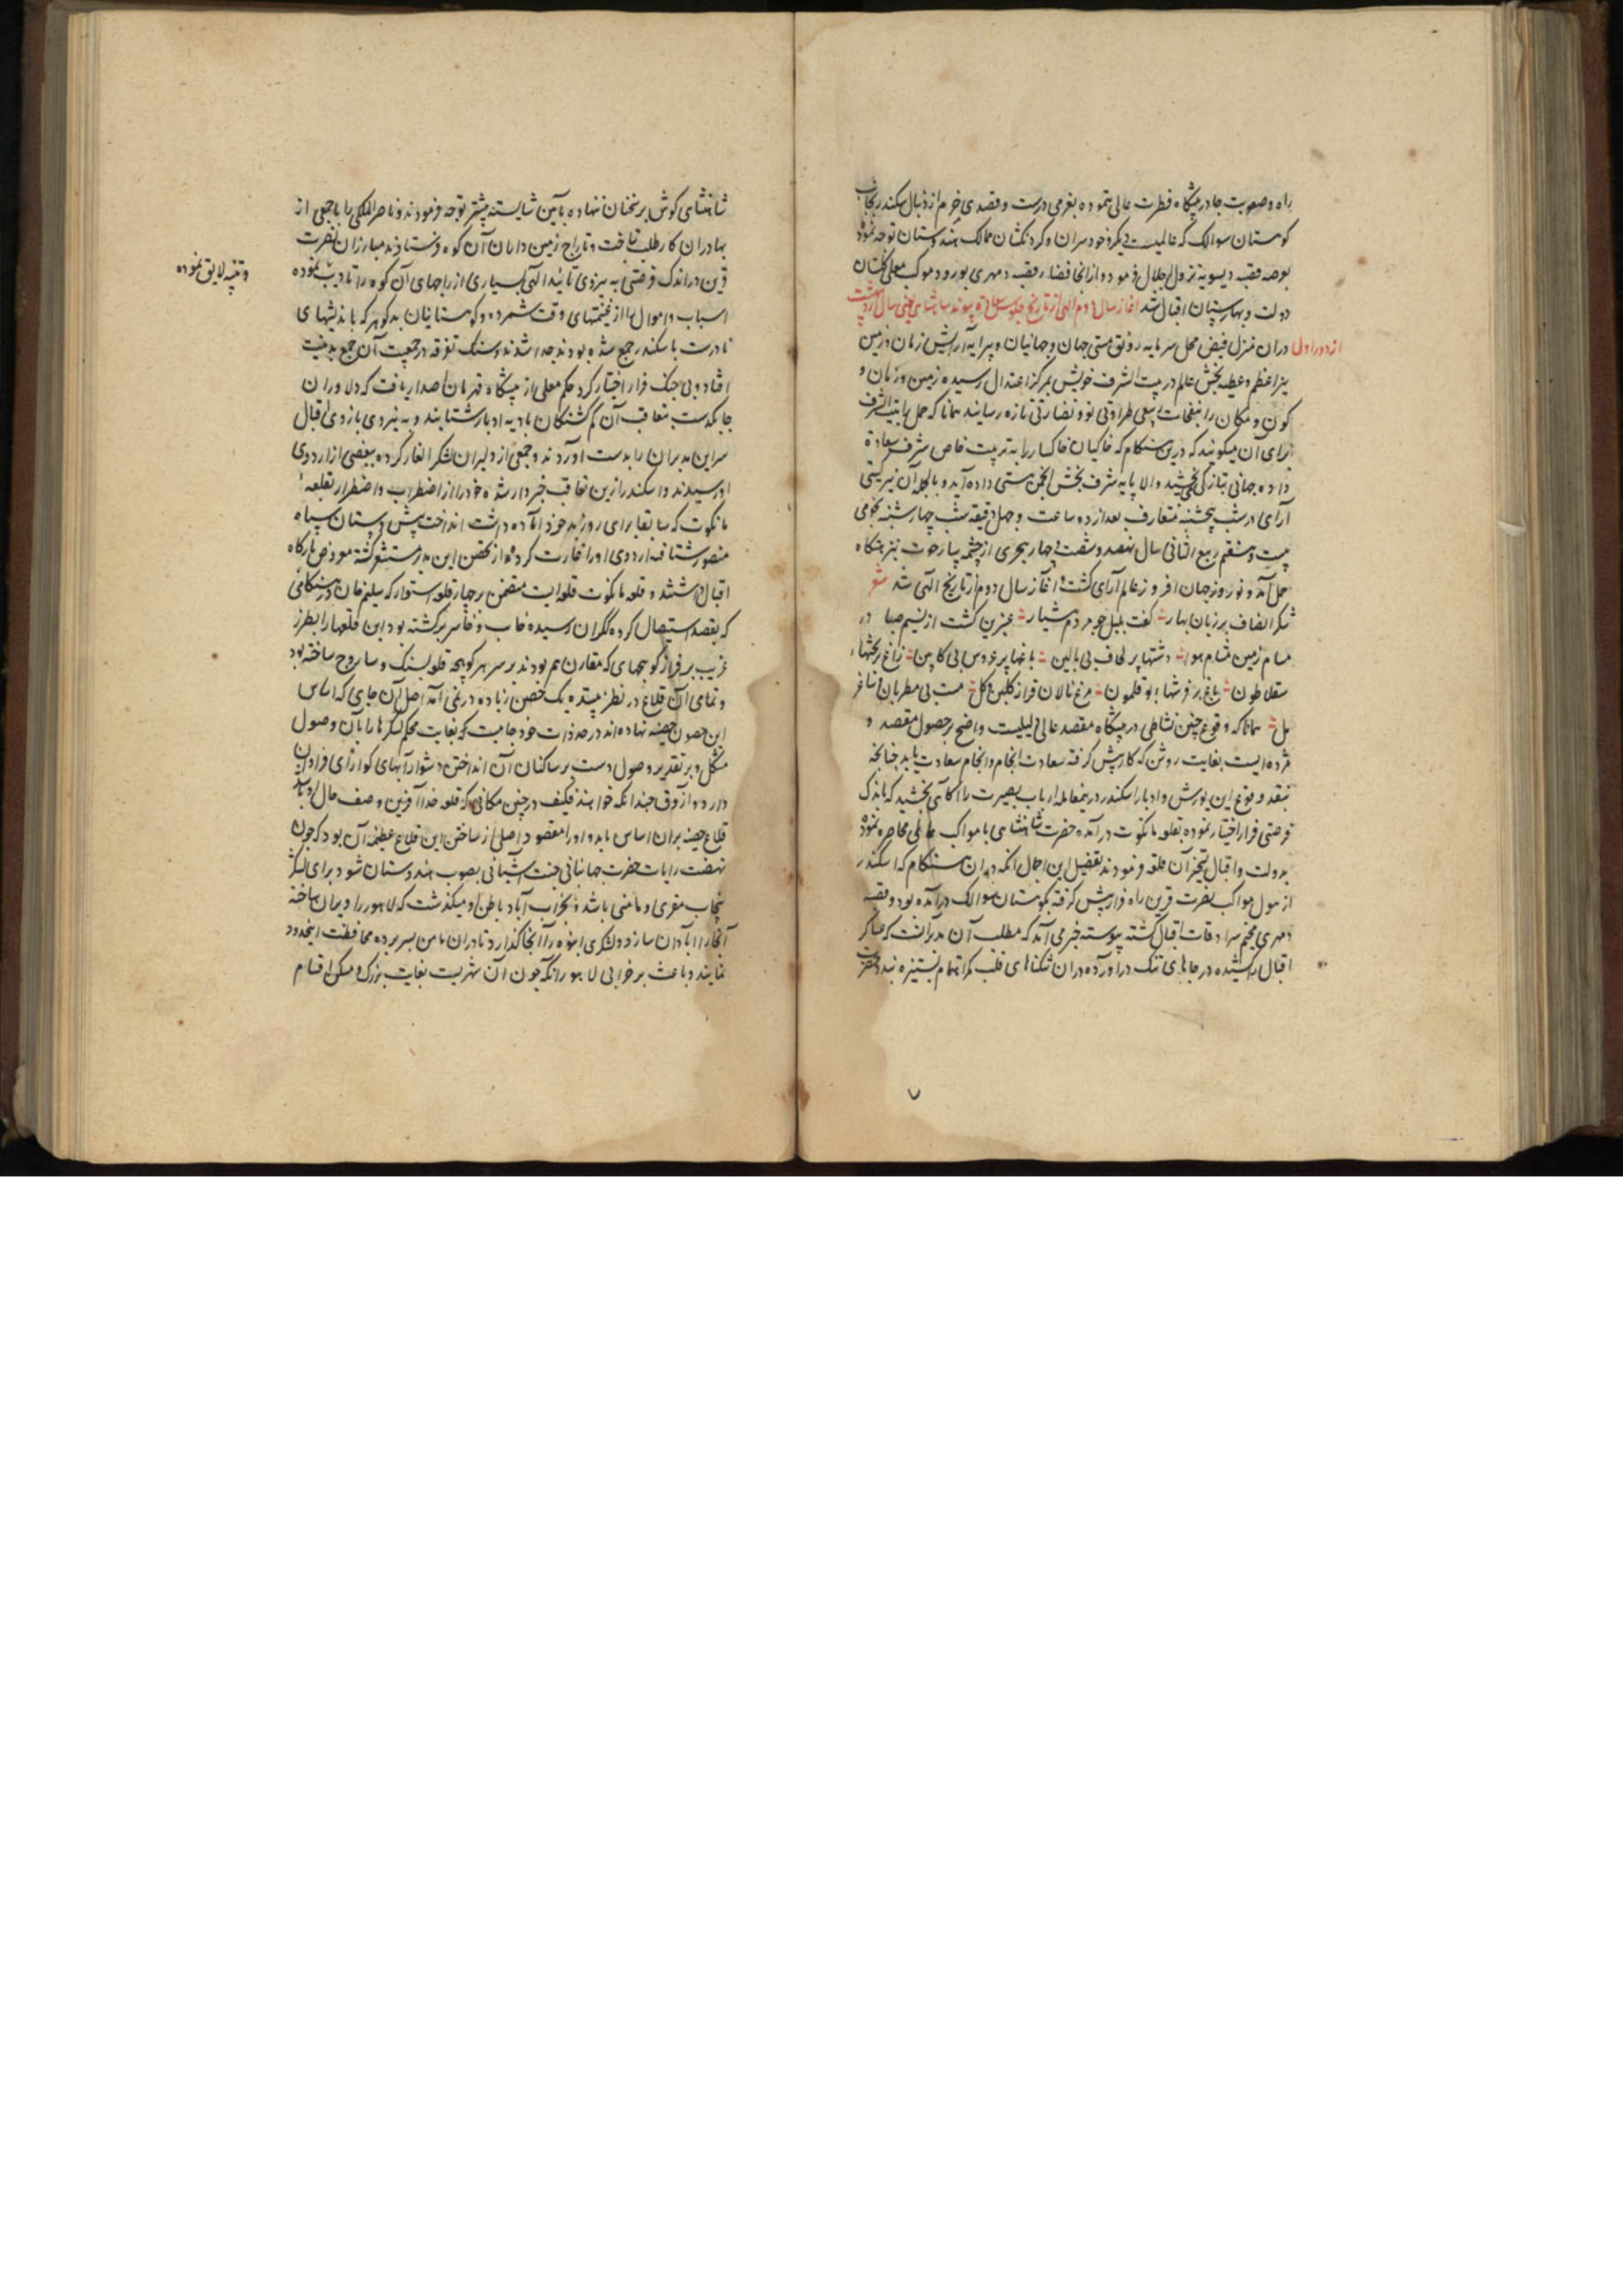 راه و صعوبت جا در پیشگاه فطرت عالی ننموده بعزمی درست و قصدی جزم از دنبال سکندر بجانب
کوهستان سوالک که عالمیست دیگر و خودسران و گردنکشان ممالک هندوستان توجه نموده
بوصه قصبه دیسویه نزول اجلال فرمود و از انجا فضاء قصبه دمهری بورود موکب معلی گلستان
دولت و بهارستان اقبال شد آغاز سال دوم الهی از تاریخ جلوس سعادت پیوند شاهنشاهی یعنی سال اردیبهشت
از دور اول
دران منزل فیض محل سرمایه رونق هستی جهان و جهانیان و پیرایه آرایش زمان و زمین
نیر اعظم و عطیه بخش عالم در بیت الشرف خویش بمرکز اعتدال رسیده زمین و زمان و
کون و مکان را بنفحات ربیعی طراوتی نو و نضارتی تازه رسانید همانا که حمل را بیت الشرف
برای آن میگویند که درین هنگام که خاکیان خاکسار را به تربیت خاص شرف سعادة
داده جهانی بتازگی بخشید والا پایه شرف بخش انجمن هستی داده آید و بالجمله آن نیر گیتی
آرای در شب پنجشنبه متعارف بعد از ده ساعت و چهل دقیقه شب چهارشنبه نجومی
بیست و هفتم ربیع الثانی سال نهصد و شصت و چهار هجری از چشمه سار حوت بنزهتگاه
حمل آمد و نوروز جهان افروز عالم آرای گشت و آغاز سال دوم از تاریخ الهی شد شعر
شکر انصاف بر زبان بهار گفت بلبل چو مردم هشیار عنبرین گشت از نسیم صبا در
مسام زمین مشام هوا دشتها پر لحاف بی بالین باغها پر عروس بی کابین زاغ بر تختهاء
سقلاطون باغ بر فرشهاء بوقلمون مرغ نالان فراز گلبن گل مست بی مطربان و ساغر
مل همانا که وقوع چنین نشاطی در پیشگاه مقصد عالی دلیلیست واضح بر حصول مقصد و
مژده ایست بغایت روشن که کار پیش گرفته سعادت انجام و انجام سعادت یابد چنانچه
بنقد وقوع این یورش و ادبار اسکندر درینمعامله ارباب بصیرت را آگاهی بخشید که باندک
فرصتی فرار اختیار نموده بقلعه مانکوت درآمده حضرت شاهنشاهی با مواکب عالی محاصره نموده
بدولت و اقبال تسخیر آن قلعه فرمودند تفصیل این اجمال انکه دران هنگام که اسکندر
از هول مواکب نصرت قرین راه فرار پیش گرفته بکوهستان سوالک درآمده بود و قصبه
دمهری مخیم سرادقات اقبال گشته پیوسته خبر می آمد که مطلب آن مدبر انست که عساکر
اقبال را کشیده در جاهای تنک درآورده دران تنگناهای قلب مگر اتمام بستیزه نهد حضرت
شاهنشاهی گوش بر سخنان ننهاده بآیین شایسته پیشتر توجه فرمودند و ناصر الملک را با جمعی از
بهادران کار طلب بتاخت و تاراج زمین داران آن کوه فرستادند مبارزان نصرت
قرین در اندک فرصتی به نیروی تائید الهی بسیاری از راجهای آن کوه را تادیب نموده
و تنبیه لایق نموده
اسباب و اموال را از غنیمتهای وقت شمرده و کوهستانیان بدگوهر که باندیشهای
نادرست با سکندر جمع شده بودند جدا شدند و سنک تفرقه در جمعیت آن جمع بدنیت
افتاد و بی جنک فرار اختیار کرد حکم معلی از پیشگاه قهرمان اصدار یافت که دلاوران
چابکدست بتعاقب آن گم گشتگان بادیه ادبار شتابند و به نیروی بازوی اقبال
سر این مدبران را بدست آورند و جمعی از دلیران لشکر ایلغار کرده ببعضی از اردوی
او رسیدند و اسکندر ازین تعاقب خبردار شده خود را از اضطراب و اضطرار بقلعه
مانکوت که سابقا برای روز بد خود آماده داشت انداخت پیش دستان سپاه
منصور شتافته اردوی او را غارت کرده و از تحصن این مدبر مستشعر گشته معروض بارگاه
اقبال داشتند و قلعه مانکوت قلعه ایست متضمن بر چهار قلعه استوار که سلیم خان در هنگامی
که بقصد استیصال گروه گکران رسیده خایب و خاسر برگشته بود این قلعها را بطرز
غریب بر فراز کوهچهای که مقارن هم بودند بر سر هر کوهچه قلعه بسنک و ساروج ساخته بود
و تمامی آن قلاع در نظر بیننده یک حصن زیاده در نمی آمد اصل آن جای که اساس
این حصون حصینه نهاده اند در حد ذات خود جاییست که بغایت محکم لشکرها را بآن وصول
مشکل و بر تقدیر وصول دست بر ساکنان آن انداختن دشوار آبهای گوارای فراوان
دارد و آزوق چندانکه خواهند فکیف در چنین مکانی که قلعه خدا آفرین وصف حال او باشد
قلاع حصینه بران اساس یابد و او را مقصود اصلی از ساختن این قلاع عظیمه آن بود که چون
نهضت رایات حضرت جهانبانی جنت آشیانی بصوب هندوستان شود برای لشکر
پنجاب مقری و مامنی باشد و بخراب آباد باطن او میگذشت که لاهور را ویران ساخته
آنجا را آبادان سازد و لشکری انبوه را آنجا گذارد تا دران مامن بسر برده محافظت اینحدود
نمایند و باعث بر خرابی لاهور انکه چون آن شهریست بغایت بزرگ و مسکن اقسام